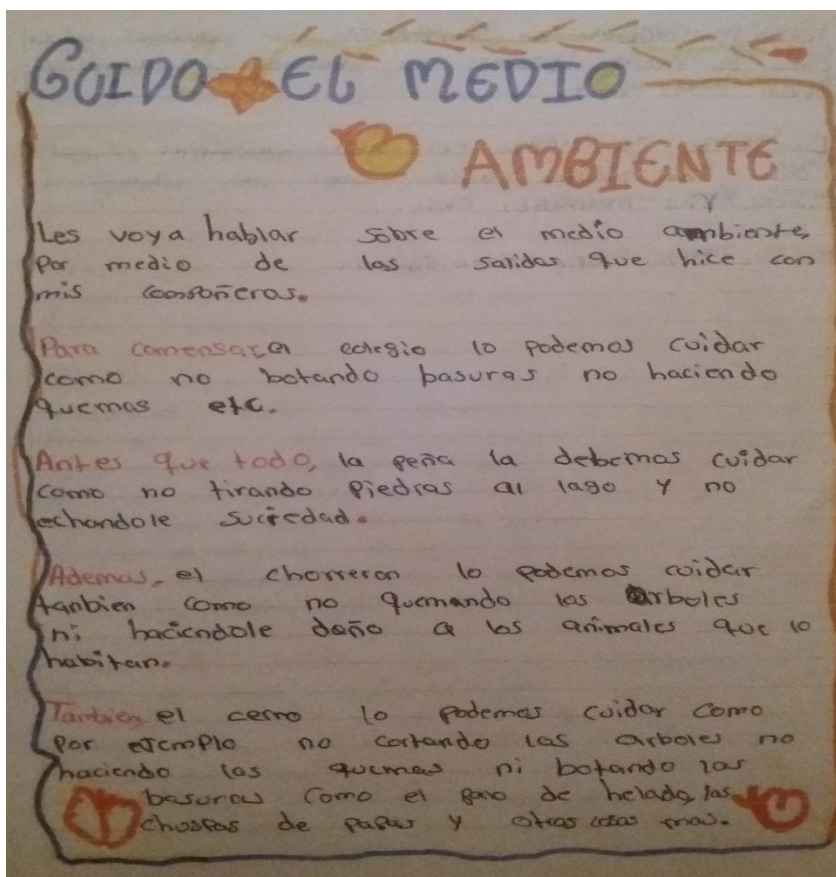 CUIDO EL MEDIO
AMBIENTE
Les voy a hablar sobre el medio ambiente,
por medio de las salidas que hice con
mis compañeros.
Para comensar el colegio lo podemos cuidar
como no botando basuras no haciendo
quemas etc.
Antes que todo, la peña la debemos cuidar
como no tirando piedras al lago y no
echandole suciedad.
Ademas, el chorreron lo podemos cuidar
tanbien como no quemando los arboles
ni haciendole daño a los animales que lo
habitan.
Tanbien el cerro lo podemos cuidar como
por ejemplo no cortando los arboles no
haciendo las quemas ni botando las
basuras como el palo de helado, las
chuspas de papas y otras cosas mas.